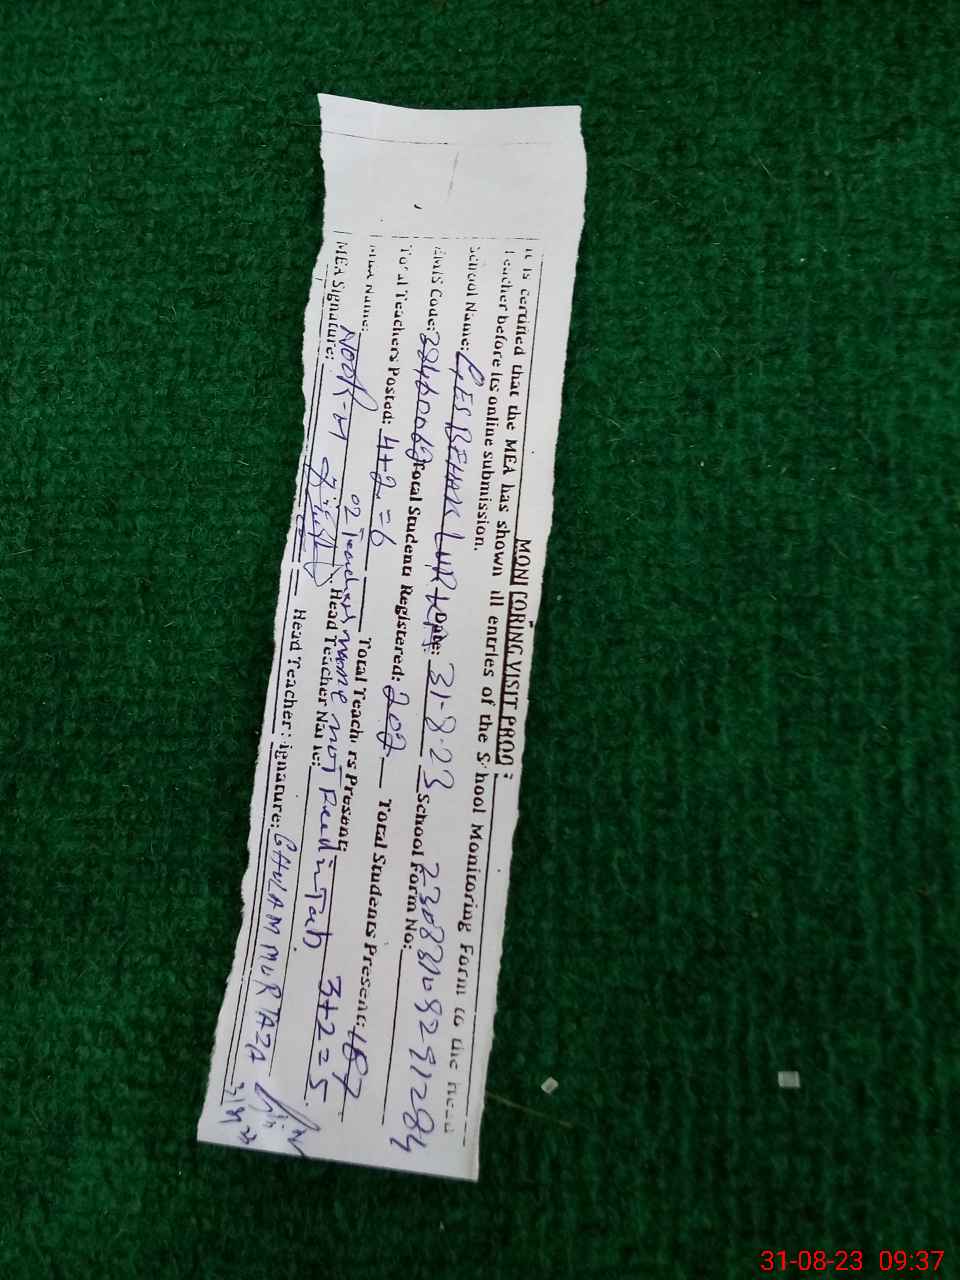 MONITORING VISIT PROOF
It is certified that the MEA has shown all entries of the School Monitoring Form to the Head
Teacher before its online submission.
School Name: GES BEHAK LURKA Date: 31-8-23 School Form No: 23083109291284
EMIS Code: 38460062 Total Students Registered: 202 Total Students Present: 187
Total Teachers Posted: 4+2=6 Total Teachers Present: 3+2=5
02 Teachers name not Feed in Tab
MEA Name: NOOR-M Head Teacher Name: GHULAM MURTAZA
MEA Signature: Head Teacher Signature:
31/8/23
31-08-23 09:37